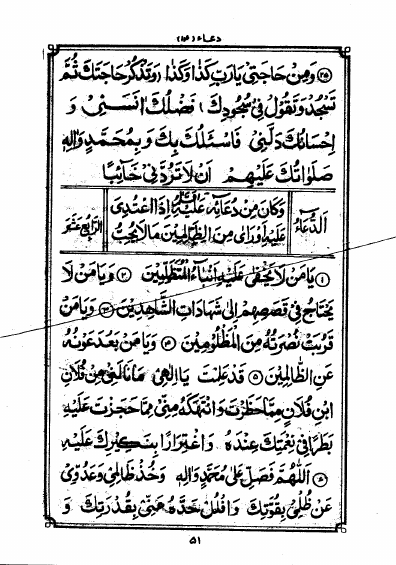 دعاء (۱۴)
﴿۲۵﴾ وَمِنْ حَاجَتِي يَارَبِّ كَذَا وَكَذَا (وَتَذْكُرُ حَاجَتَكَ ثُمَّ
تَسْجُدُ وَتَقُولُ فِي سُجُودِكَ) فَضْلُكَ آنَسَنِي وَ
إِحْسَانُكَ دَلَّنِي فَأَسْئَلُكَ بِكَ وَبِمُحَمَّدٍ وَآلِهِ
صَلَوَاتُكَ عَلَيْهِمْ أَنْ لَا تَرُدَّنِي خَائِبًا
اَلدُّعَاءُ
وَكَانَ مِنْ دُعَائِهِ عَلَيْهِ السَّلَامُ إِذَا اعْتُدِيَ
عَلَيْهِ أَوْ رَأَى مِنَ الظَّالِمِينَ مَا لَا يُحِبُّ
الرَّابِعُ عَشَرَ
﴿۱﴾ يَا مَنْ لَا يَخْفَى عَلَيْهِ أَنْبَاءُ الْمُتَظَلِّمِينَ ﴿۲﴾ وَيَا مَنْ لَا
يَحْتَاجُ فِي قَصَصِهِمْ إِلَى شَهَادَاتِ الشَّاهِدِينَ ﴿۳﴾ وَيَا مَنْ
قَرُبَتْ نُصْرَتُهُ مِنَ الْمَظْلُومِينَ ﴿۴﴾ وَيَا مَنْ بَعُدَ عَوْنُهُ
عَنِ الظَّالِمِينَ ﴿۵﴾ قَدْ عَلِمْتَ يَا إِلٰهِي مَا نَالَنِي مِنْ فُلَانِ
ابْنِ فُلَانٍ مِمَّا حَظَرْتَ وَانْتَهَكَهُ مِنِّي مِمَّا حَجَزْتَ عَلَيْهِ
بَطَرًا فِي نِعْمَتِكَ عِنْدَهُ وَاغْتِرَارًا بِنَكِيرِكَ عَلَيْهِ
اَللّٰهُمَّ فَصَلِّ عَلَى مُحَمَّدٍ وَآلِهِ وَخُذْ ظَالِمِي وَعَدُوِّي
عَنْ ظُلْمِي بِقُوَّتِكَ وَافْلُلْ حَدَّهُ عَنِّي بِقُدْرَتِكَ وَ
۵۱